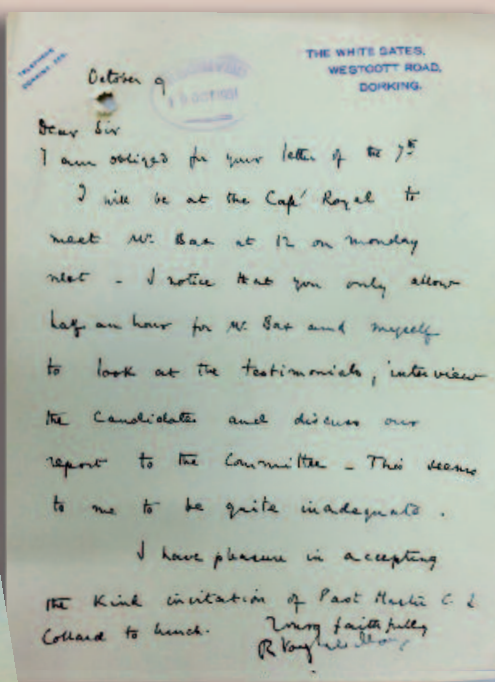 TELEPHONE
DORKING
THE WHITE GATES,
WESTCOTT ROAD,
DORKING.
October 9
Dear Sir
I am obliged for your letter of the 7th
I will be at the Café Royal to
meet Mr. Bax at 12 on Monday
next - I notice that you only allow
half an hour for Mr. Bax and myself
to look at the testimonials, interview
the Candidates and discuss our
report to the Committee - This seems
to me to be quite inadequate.
I have pleasure in accepting
the kind invitation of Past Master C. L
Collard to lunch.
Yours faithfully
R Vaughan Williams